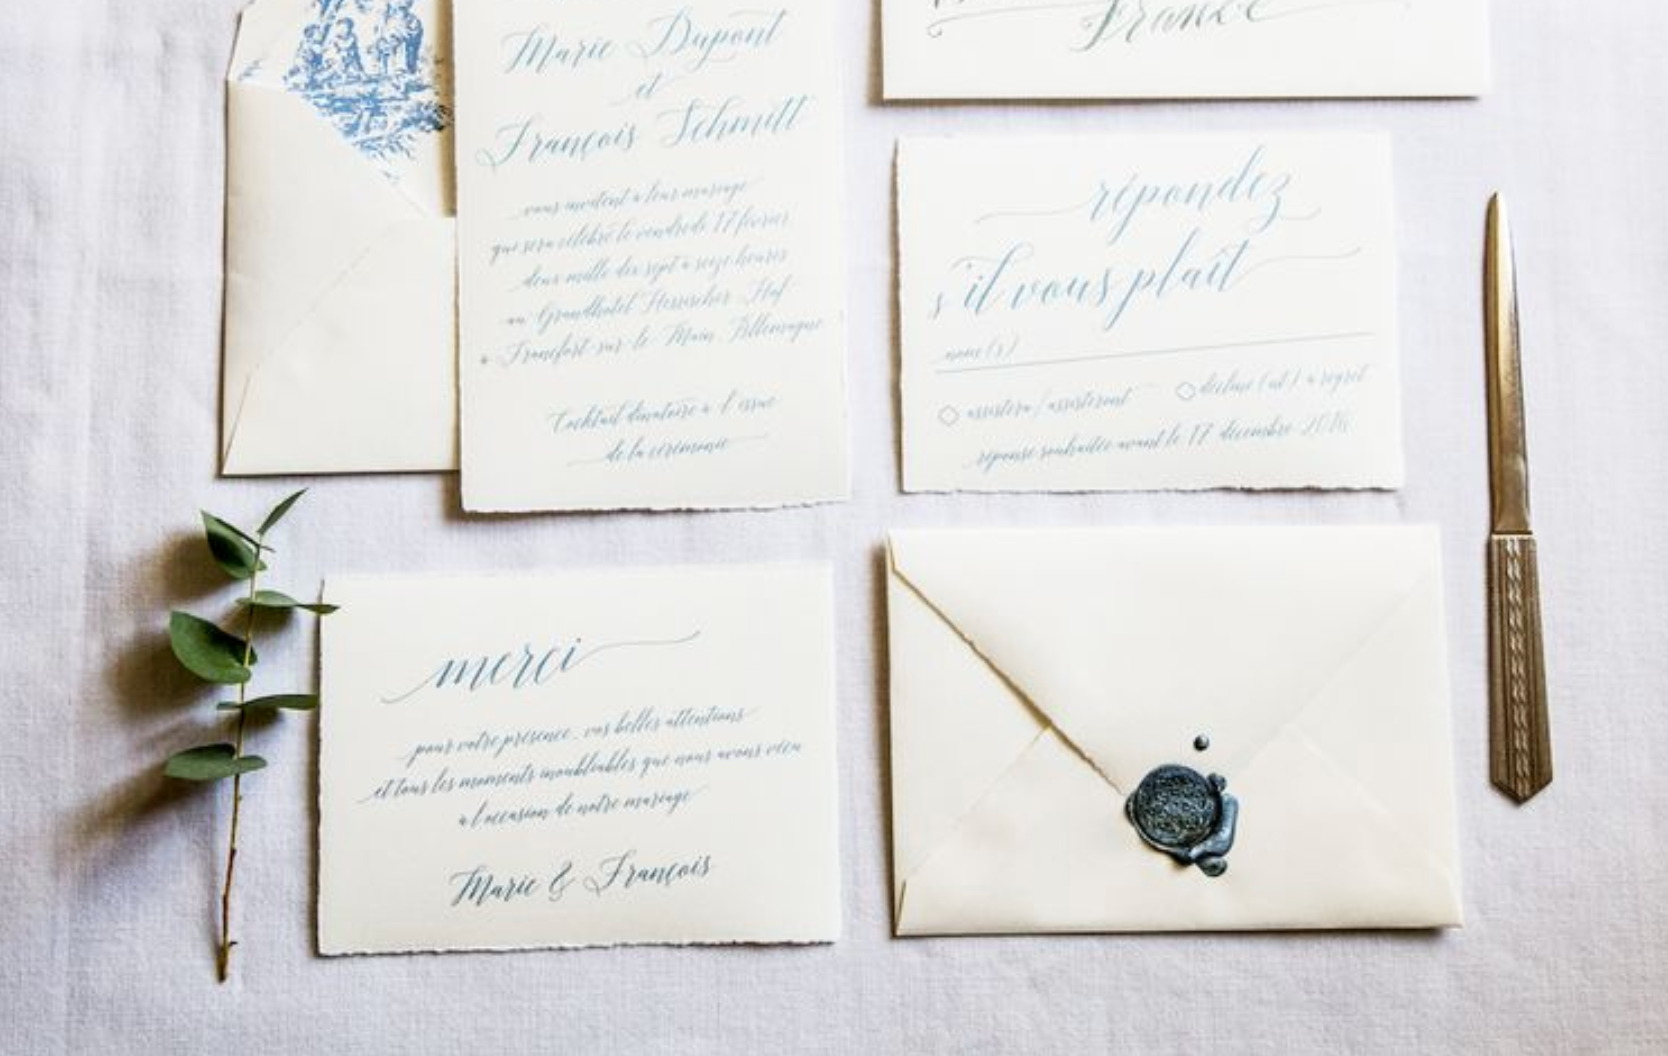 Marie Dupont
et
François Schmitt
vous invitent à leur mariage
que sera célébré le vendredi 17 février
deux mille dix sept à seize heures
au Grandhotel Hessischer Hof
à Francfort-sur-le-Main, Allemagne
Cocktail dînatoire à l'issue
de la cérémonie
France
répondez
s'il vous plaît
nom(s)
assistera/assisteront
décline(nt) à regret
réponse souhaitée avant le 17 décembre 2016
merci
pour votre présence, vos belles attentions
et tous les moments inoubliables que nous avons vécu
à l'occasion de notre mariage
Marie & François